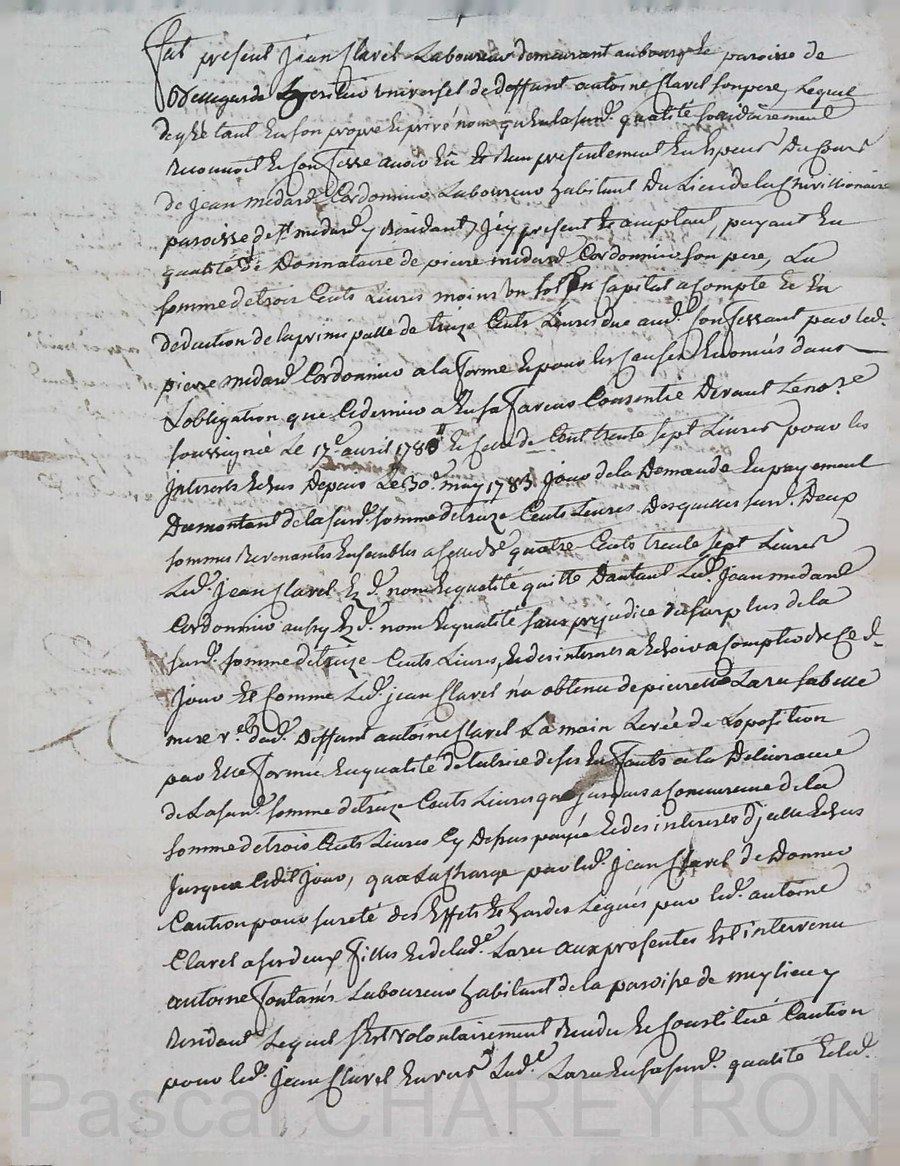 fut présent Jean Clavel Laboureur demeurant au bourg et paroisse de
Bellegarde heritier universel de deffunt antoine Clavel son pere, Lequel
de gré tant En son propre et privé nom qu'En la susd. qualité solidairement
Reconnoit et Confesse avoir Eu et Reçu présentement En Especes Du Cours
de jean midard Cordonnier Laboureur habitant Du Lieu de la
paroisse de st. midard y Résidant, Icy present et acceptant, payant En
qualité de Donnataire de pierre midard Cordonnier son pere, La
somme de trois Cents Livres moins un sol En Capital acompte et En
deduction de la principalle de treize Cents Livres due aud. Confessant par led.
pierre midard Cordonnier a la forme et pour les Causes Enoncés dans
L'obligation que Ce dernier a En sa faveur Consentie Devant Le no.re
soussigné Le 17.e avril 1780 Et Celle de Cent trente sept Livres pour les
Interets Echus Depuis Le 30.e may 1783 Jour de la Demande En payement
Du montant de la susd. somme de treize Cents Livres. Desquelles susd. Deux
sommes Revenantes Ensembles a Celle de quatre Cents trente sept Livres
Led. Jean Clavel Ez d. nom et qualité quitte Dautant Led. Jean midard
Cordonnier aussy Ez d. nom et qualité sans prejudice du surplus de la
susd. somme de treize Cents Livres, Et des interets a Echoir a Compter de Ce d.
Jour Et Comme Led. jean Clavel n'a obtenu de pierrette Lara sa belle
mere v.e dud. Deffunt antoine Clavel La main Levée de Loposition
par Elle formée En qualité de tutrice de ses Enfants a la Delivrance
de La susd. somme de treize Cents Livres que jusques a Concurence de la
somme de trois Cents Livres Cy Dessus payée Et des interets d'jcelle Echus
Jusques a Cedit Jour, qu'a La Charge par led. Jean Clavel de Donner
Caution pour sureté des Effets Et hardes Legués par led. antoine
Clavel a ses deux filles Et de lad.e Lara aux presentes Est intervenu
antoine fontanés Laboureur habitant de la paroisse de meylieu y
Residant Lequel s'Est volontairement Rendu Et Constitué Caution
pour led. Jean Clavel Envers Lad.e Lara En sa susd. qualité Et led.
Pascal CHAREYRON